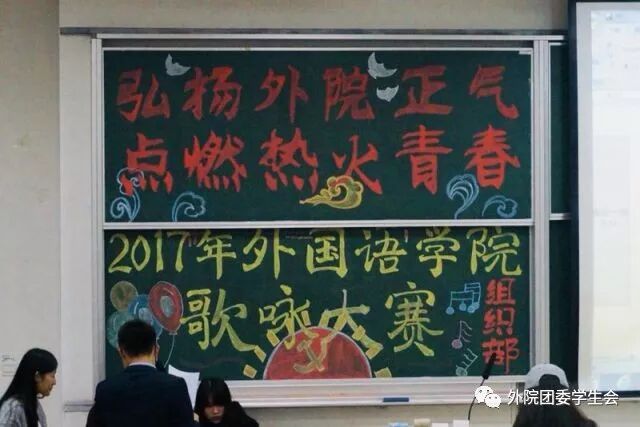 弘扬外院正气
点燃热火青春
2017年外国语学院
歌咏大赛
组织部
外院团委学生会